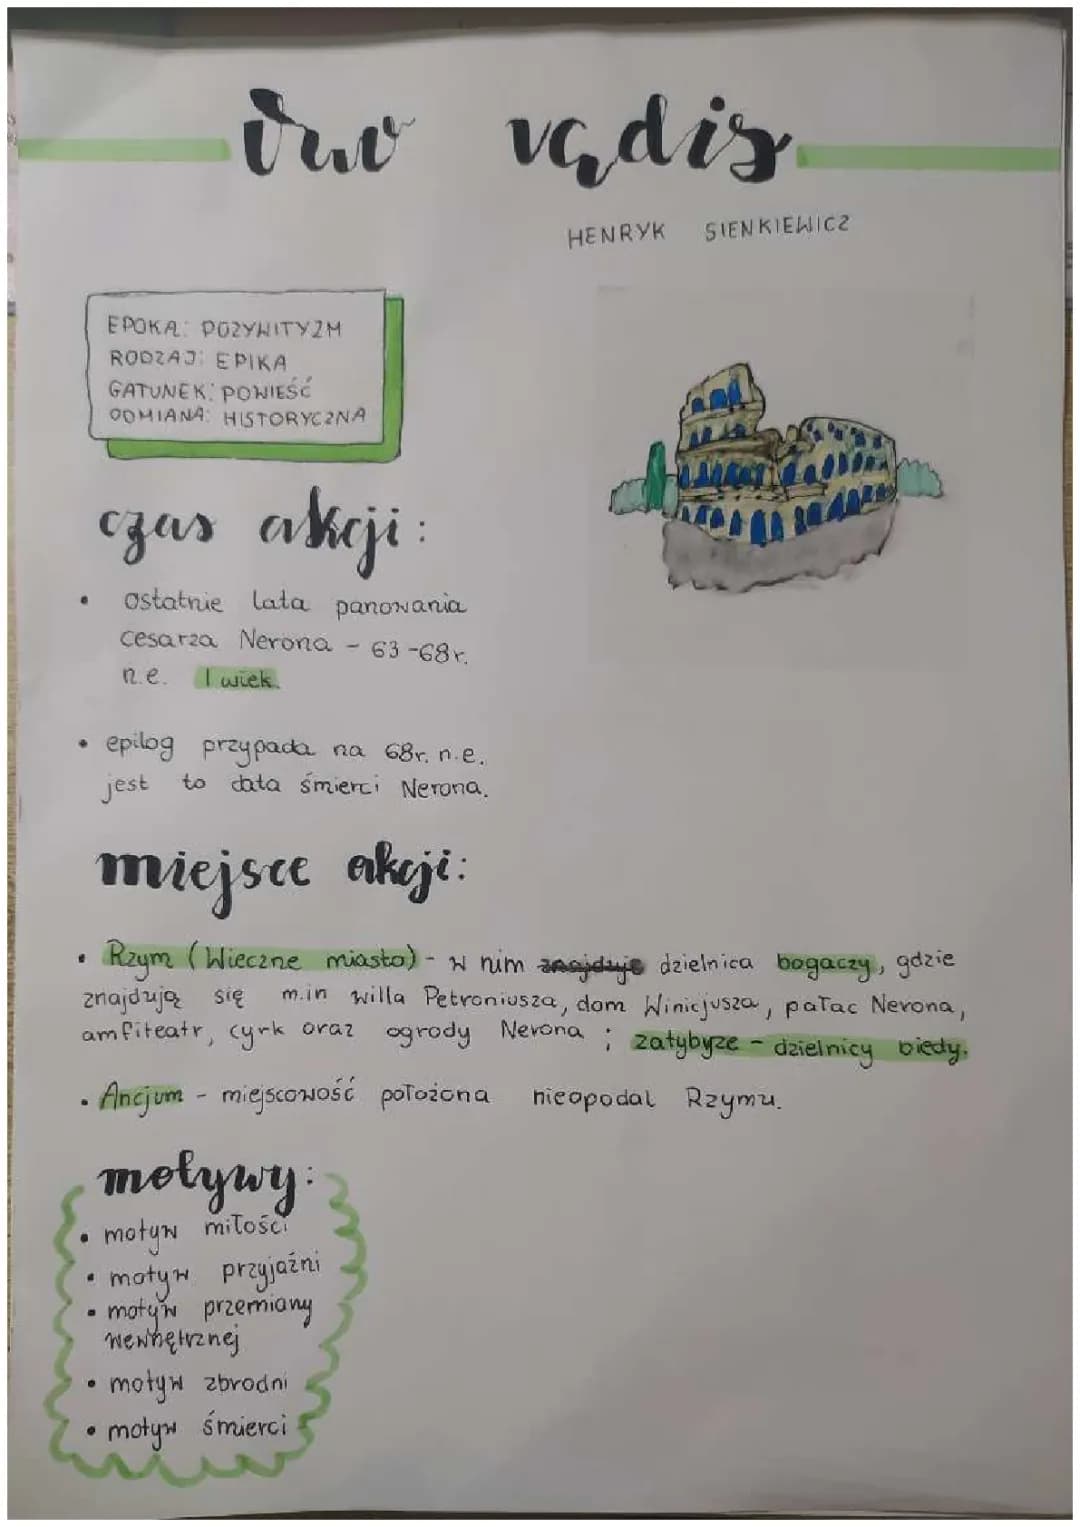 quo vadis
HENRYK SIENKIEWICZ
EPOKA: POZYWITYZM
RODZAJ: EPIKA
GATUNEK: POWIEŚĆ
ODMIANA: HISTORYCZNA
czas akcji:
• ostatnie lata panowania
cesarza Nerona - 63-68r.
n.e. I wiek.
• epilog przypada na 68r. n.e.
jest to data śmierci Nerona.
miejsce akcji:
• Rzym (Wieczne miasto) - w nim znajduje dzielnica bogaczy, gdzie
znajdują się m.in willa Petroniusza, dom Winicjusza, pałac Nerona,
amfiteatr, cyrk oraz ogrody Nerona ; zatybrze - dzielnicy biedy.
• Ancjum - miejscowość położona nieopodal Rzymu.
motywy:
• motyw miłości
• motyw przyjaźni
• motyw przemiany
wewnętrznej
• motyw zbrodni
• motyw śmierci